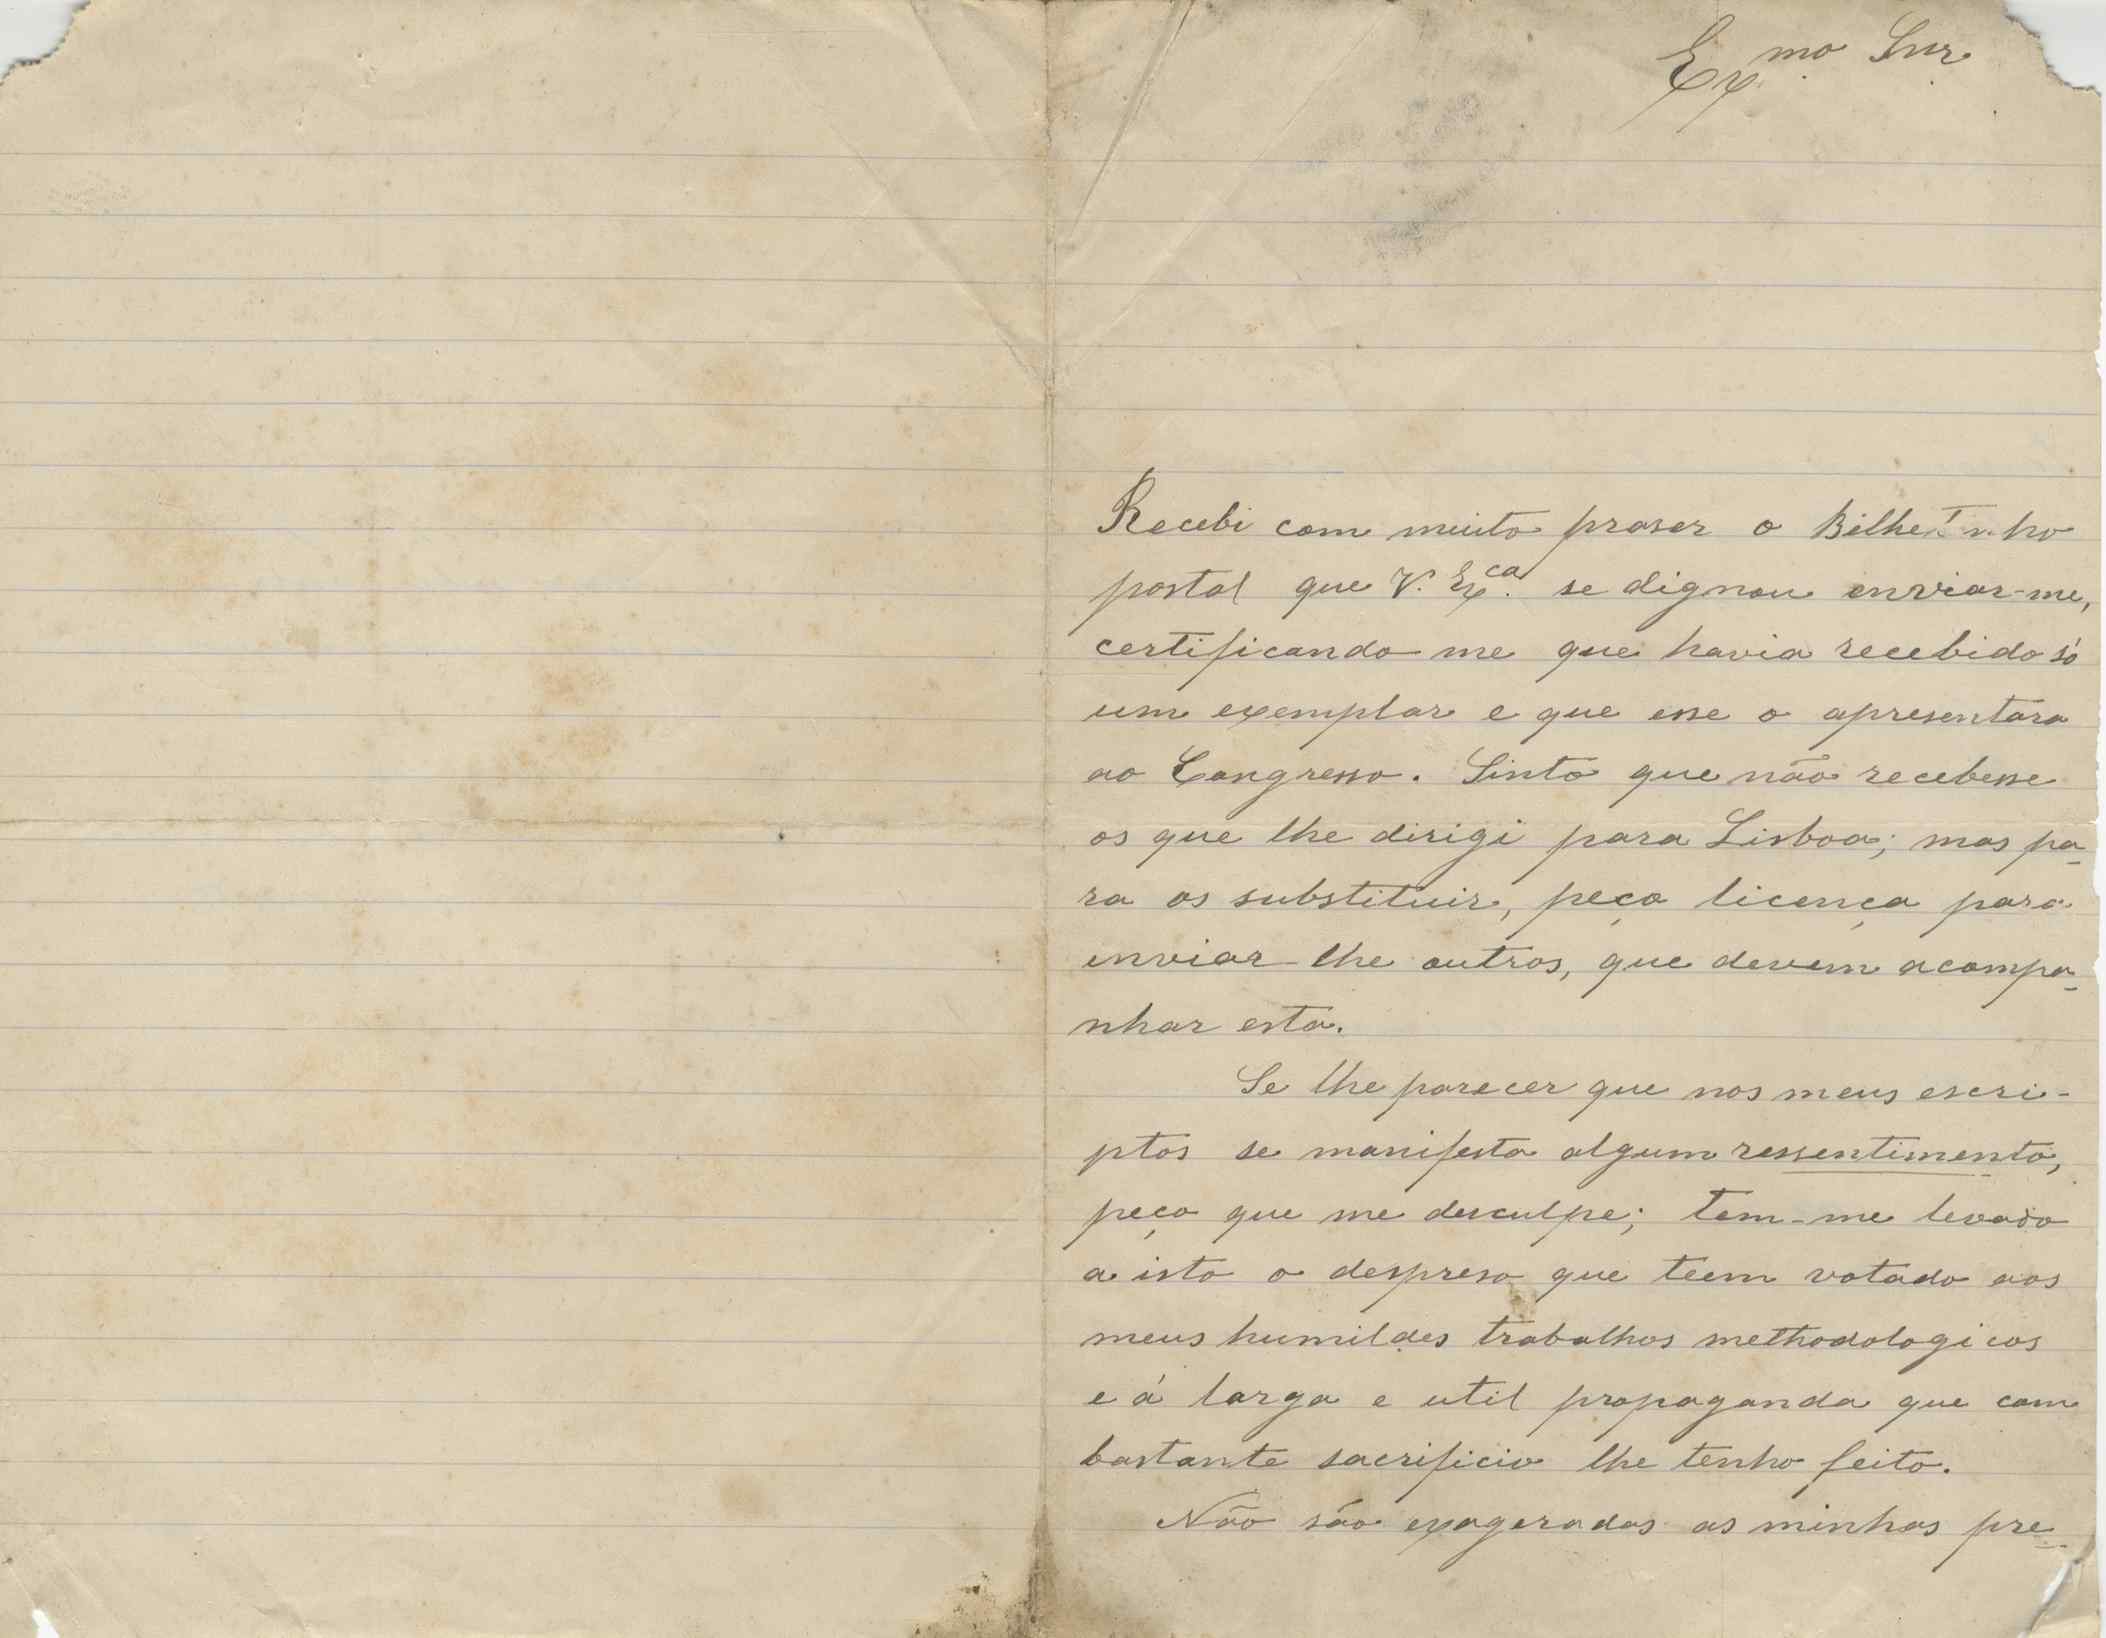 Ex.mo Snr.
Recebi com muito praser o Bilhetinho
postal que V. Ex.ca se dignou enviar-me,
certificando me que havia recebido só
um exemplar e que esse o apresentara
ao Congresso. Sinto que não recebesse
os que lhe dirigi para Lisboa; mas pa-
ra os substituir, peço licença para
enviar-lhe outros, que devem acompa-
nhar esta.
Se lhe parecer que nos meus escri-
ptos se manifesta algum ressentimento,
peço que me desculpe; tem-me levado
a isto o despreso que teem votado aos
meus humildes trabalhos methodologicos
e á larga e util propaganda que com
bastante sacrificio lhe tenho feito.
Não são exageradas as minhas pre-